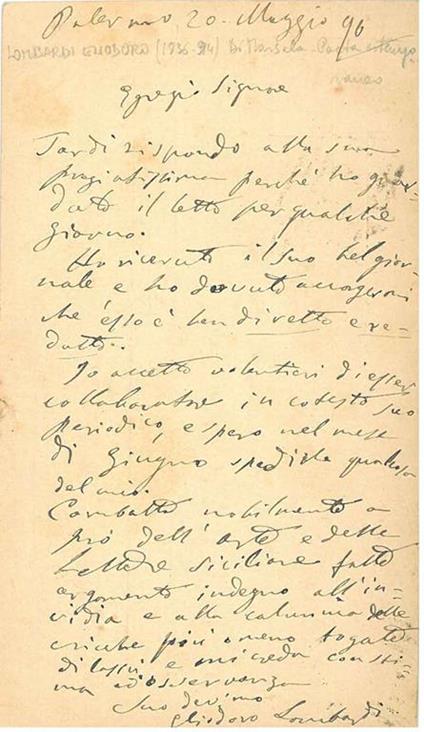 Palermo, 20. Maggio 90
LOMBARDI ELIODORO (1836-94) Di Marsala - Poeta estempo-
raneo
Egregio Signore
Tardi rispondo alla sua
pregiatissima perchè ho guar-
dato il letto per qualche
giorno.
Ho ricevuto il suo bel gior-
nale e ho dovuto accorgermi
che esso è ben diretto e re-
datto.
Io accetto volentieri di esser
collaboratore in cotesto suo
periodico, e spero nel mese
di Giugno spedirle qualcosa
del mio.
Combatta nobilmente a
prò dell'arte e delle
lettere siciliane fatte
argomento indegno all'in-
vidia e alla calunnia delle
cricche più o meno togate
di lassù e mi creda con sti-
ma ed osservanza
Suo devmo
Eliodoro Lombardi